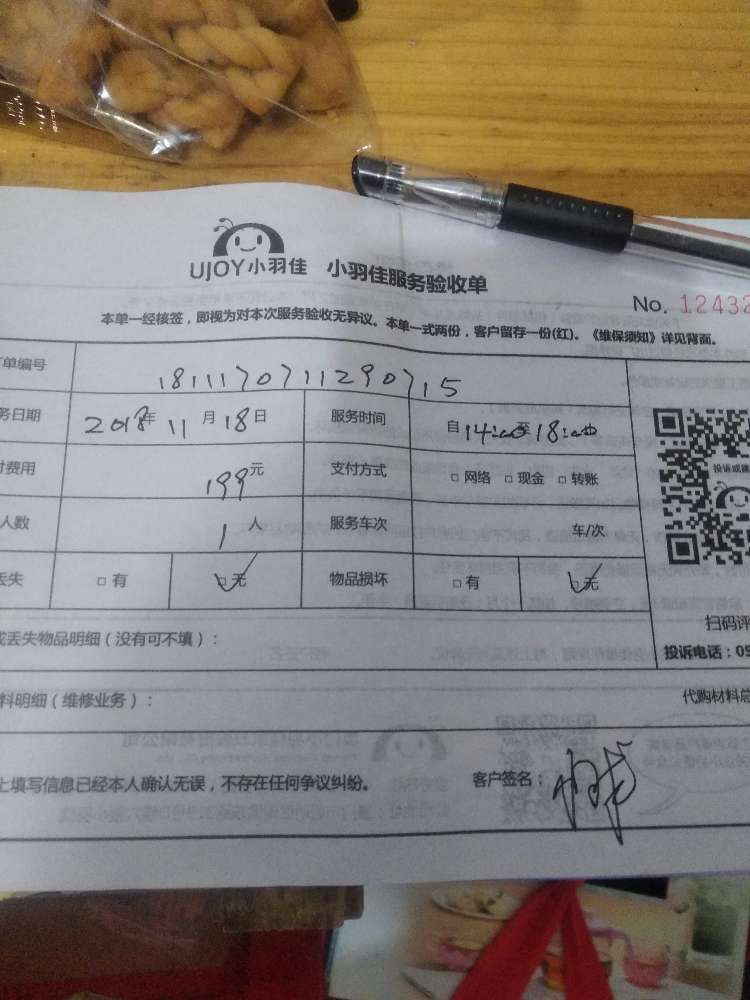 UJOY小羽佳 小羽佳服务验收单
No. 12432
本单一经核签，即视为对本次服务验收无异议。本单一式两份，客户留存一份(红)。《维保须知》详见背面。
单编号 1811170711290715
务日期 2018年 11 月 18 日 服务时间 自 14:00 至 18:00 止
费用 199元 支付方式 □ 网络 □ 现金 □ 转账
人数 1 人 服务车次 车/次
丢失 □ 有 □ 无 物品损坏 □ 有 □ 无
投诉或建
扫码评
投诉电话：05
或丢失物品明细（没有可不填）：
料明细（维修业务）： 代购材料总
上填写信息已经本人确认无误，不存在任何争议纠纷。 客户签名：